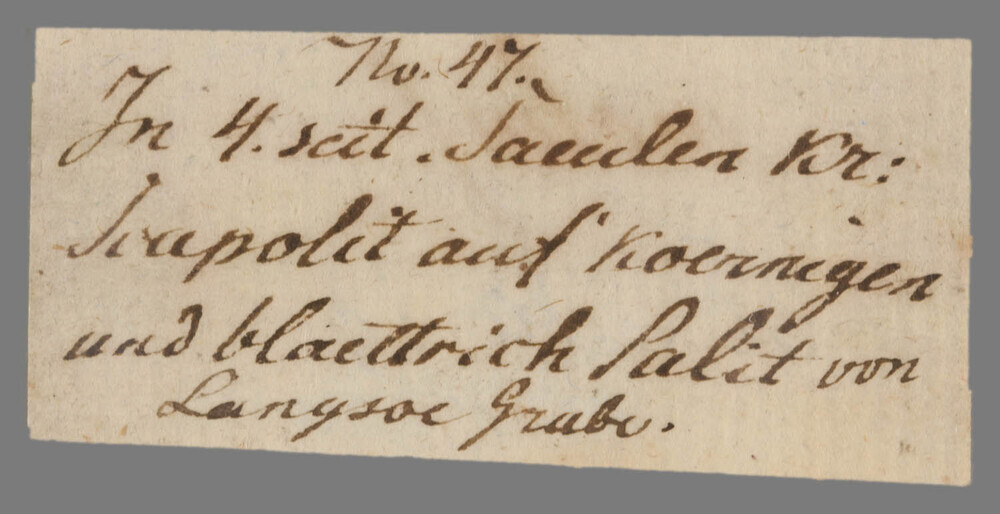 No. 47.
In 4. seit. Saeulen Kr:
Scapolit auf Koernigen
und blaettrich Salit von
Langsoe Grube.